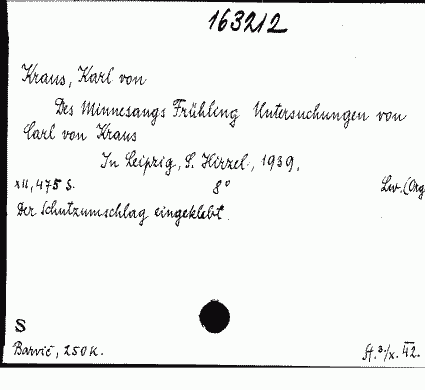 163212
Kraus, Karl von
Des Minnesangs Frühling Untersuchungen von
Carl von Kraus
In Leipzig, S. Hirzel, 1939.
XII, 475 S. 8° Lw. (Org
Der Schutzumschlag eingeklebt.
S
Barvič, 250 K. St. 3/X. 42.